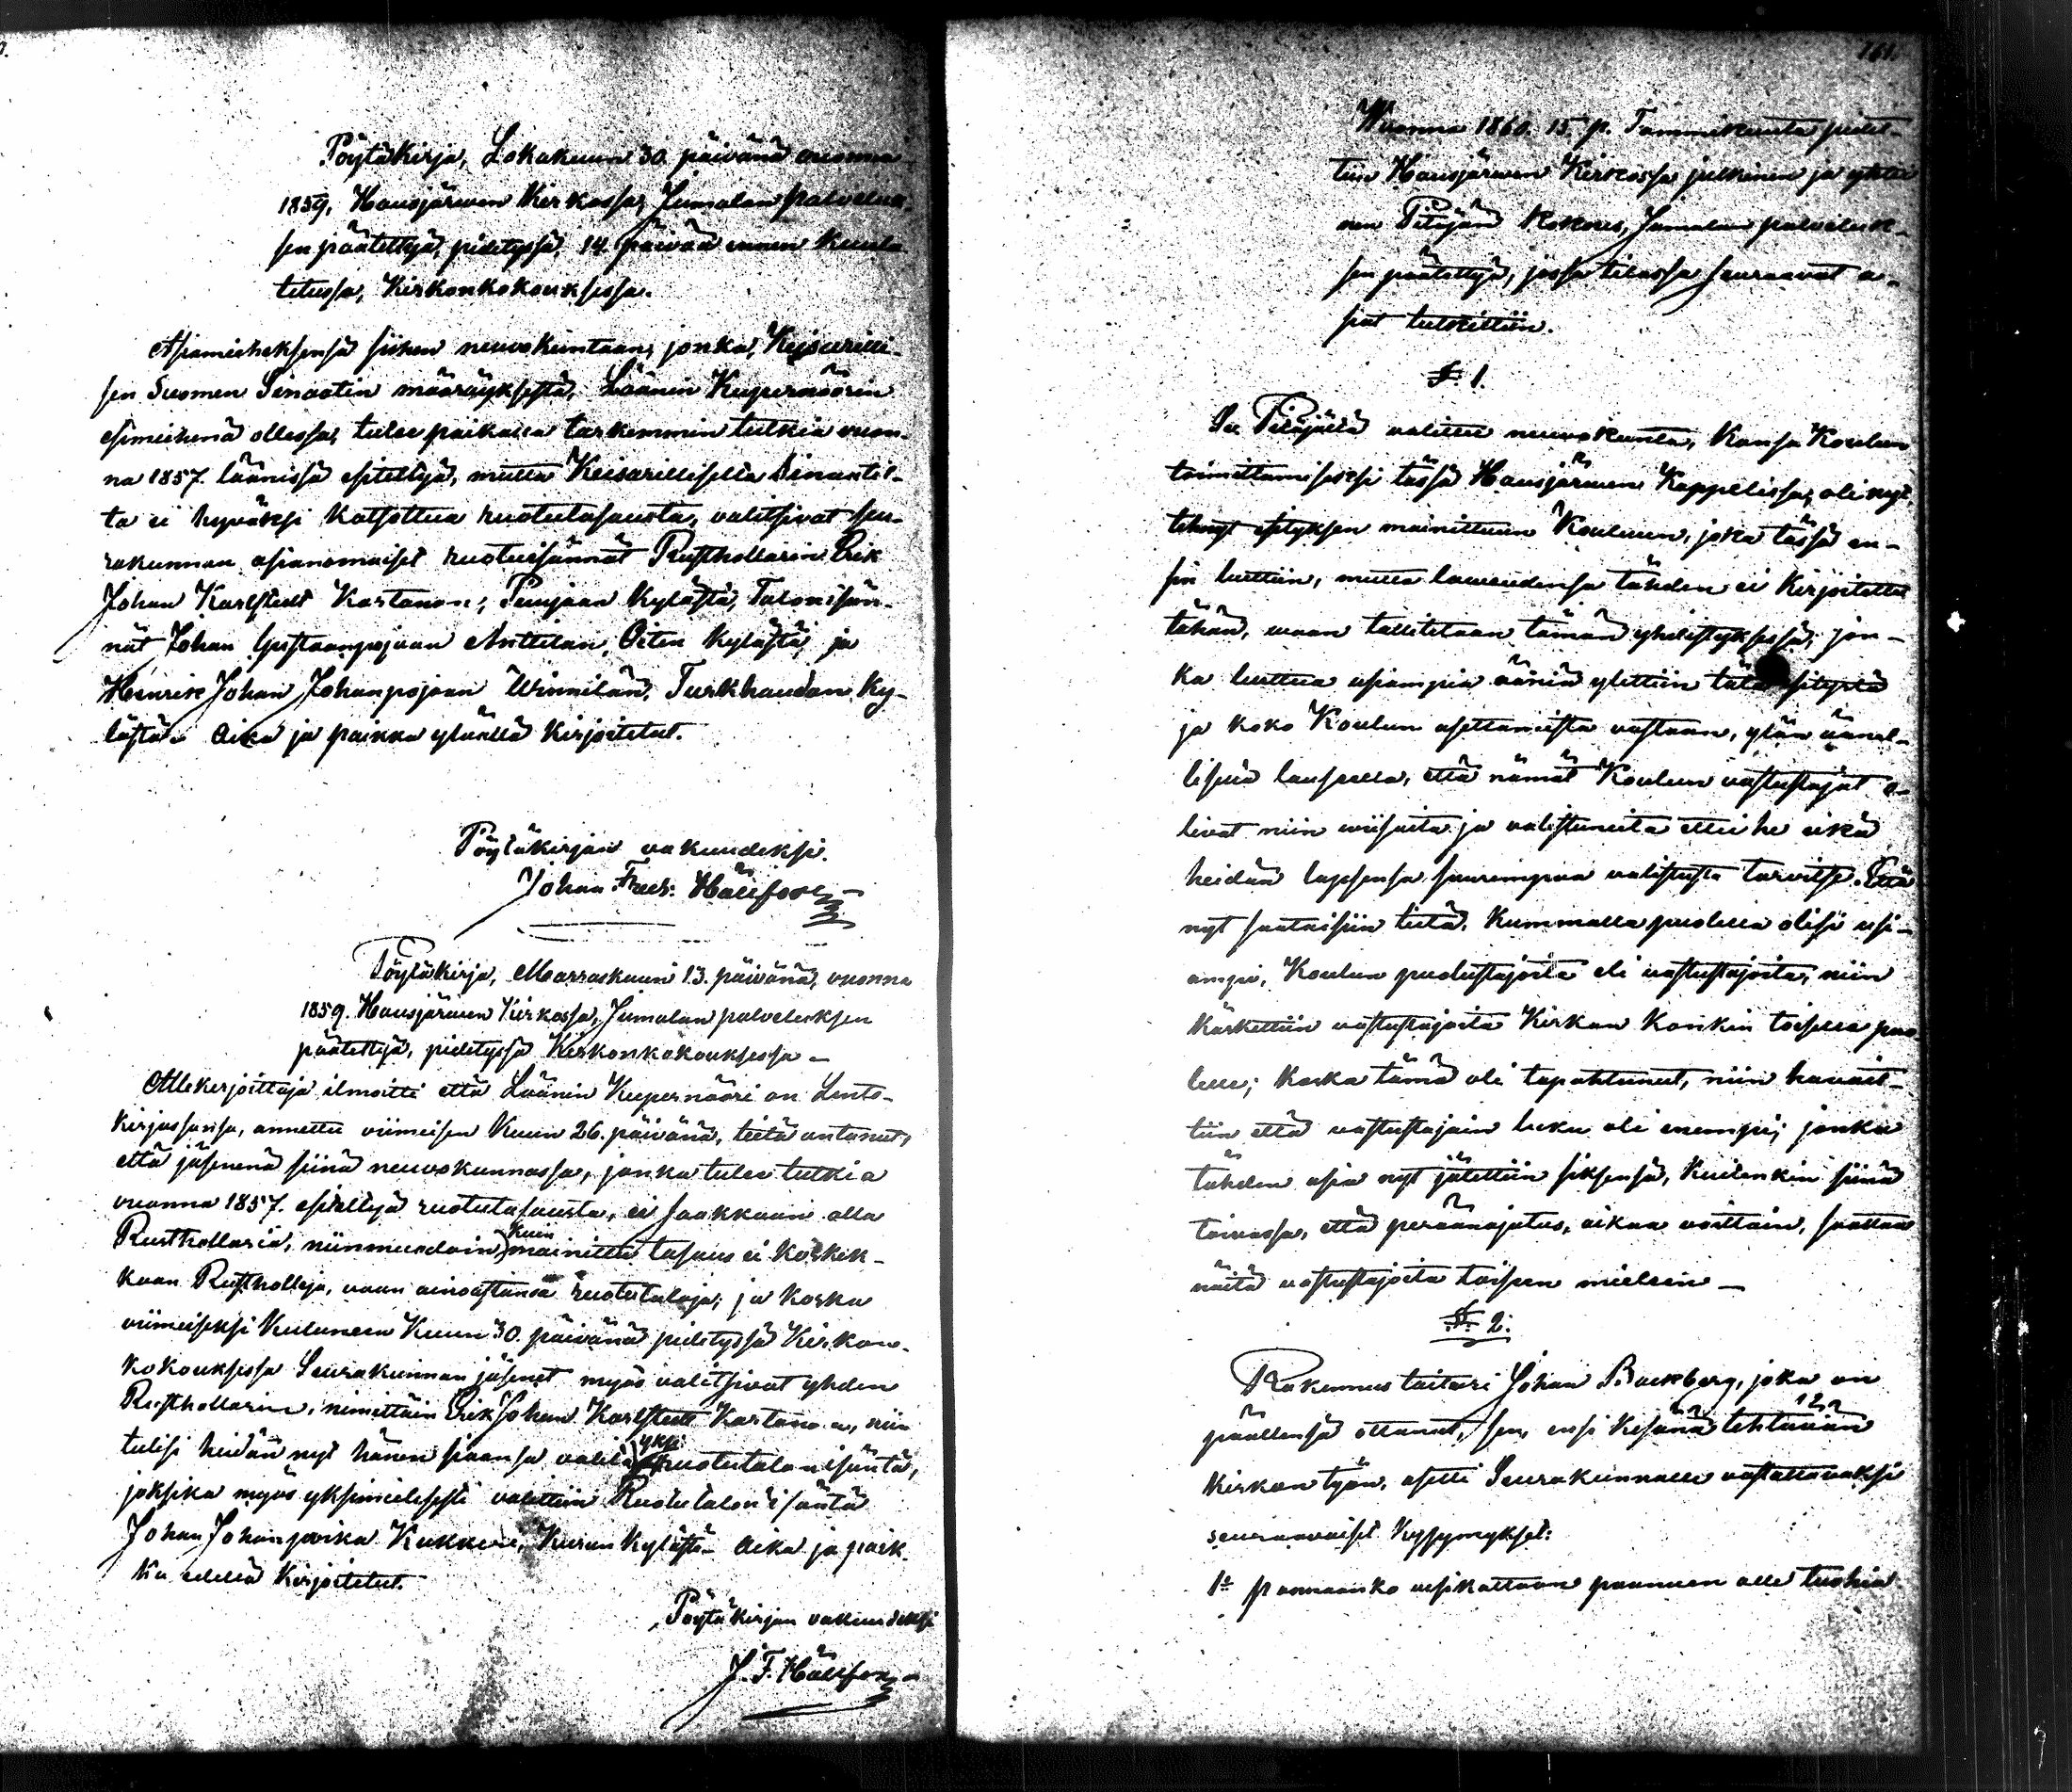 Pöytäkirja, Lokakuun 30. päivänä vuonna
1859, Hausjärwen Kirkossa, Jumalan palveluk-
sen päätettyä, pidetyssä, 14 päivää ennen kuulu
tetussa, Kirkonkokouksessa.
Asiamieheksensä siihen neuvokuntaan, jonka, Keisarilli-
sen Suomen Senaatin määräyksestä, Läänin Kupernöörin
esimiehenä ollessa, tulee paikalla tarkemmin tutkia vuon-
na 1857. läänissä esitettyä, mutta Keisarilliselta Senaatil-
ta ei hyväksi katsottua ruotutasausta, valitsivat seu-
rakunnan asianomaiset ruotuisännät Rusthollarin Erik
Johan Karlstedt Kartanon, Puujaan kylästä, Talonisän-
nät Johan Gustaanpojan Anttilan, Oiten kylästä, ja
Henrik Johan Johanpojan Winnilän, Turkhaudan ky-
lästä. Aika ja paikka ylhäällä kirjoitetut.
Pöytäkirjan vakuudeksi.
Johan Fredr: Hällfors
Pöytäkirja, Marraskuun 13. päivänä, vuonna
1859. Hausjärwen Kirkossa, Jumalan palveluksen
päätettyä, pidetyssä Kirkonkokouksessa
Allekirjoittaja ilmoitti että Läänin Kupernööri on Lento-
kirjassansa, annettu viimeisen Kuun 26. päivänä, tietä antanut,
että jäsenenä siinä neuvokunnassa, jonka tulee tutkia
vuonna 1857. esitettyä ruotutasausta, ei saakkaan olla
Rusthollaria, niinmuodoin kuin mainittu tasaus ei koskek-
kaan Rustholleja, vaan ainoastansa ruotutaloja; ja koska
viimeiseksi kuluneen Kuun 30. päivänä pidetyssä Kirkon-
kokouksessa Seurakunnan jäsenet myös valitsivat yhden
Rusthollarin, nimittäin Erik Johan Karlstedt Kartanon, niin
tulisi heidän nyt hänen siaansa valita yksi ruotutalonisäntä,
joksika myös yksimielisesti valittiin Ruotutalon isäntä
Johan Johanpoika Kukkoin, Kurun kylästä. Aika ja paik-
ka edellä kirjoitetut.
Pöytäkirjan vakuudeksi
J. F. Hällfors
161.
Wuonna 1860. 15. p. Tammikuuta pidet-
tiin Hausjärwen Kirkossa julkinen ja yhtei
nen Pitäjän kokous, Jumalan palveluk-
sen päätettyä, jossa tilassa seuraavat a-
siat tutkittiin.
§ 1.
Se Pitäjältä valittu neuvokunta, Kansa Koulun
toimittamiseksi tässä Hausjärwen Kappelissa, oli nyt
tehnyt esityksen mainittuun Kouluun, joka tässä en-
sin luettiin, mutta laweudensa tähden ei kirjoitettu
tähän, vaan talletetaan tämän yhdistyksessä; jon-
ka luettua usiampia ääniä ylettiin tätä esitystä
ja koko Koulun asettamista vastaan, ylän äänel-
lisellä lauseella, että nämät Koulun vastustajat o-
livat niin wiisaita ja valistuneita ettei he eikä
heidän lapsensa suurempaa valistusta tarvitse. Että
nyt saataisiin tietä, kummalla puolella olisi usi-
ampi, Koulun puolustajoita eli vastustajoita, niin
käskettiin vastustajoita Kirkon Konkin toisella puo
lelle; koska tämä oli tapahtunut, niin havait-
tiin että vastustajain luku oli enempi; jonka
tähden asia nyt jätettiin siksensä, kuitenkin siinä
toivossa, että peräänajatus, aikaa voittain, saattaa
näitä vastustajoita toiseen mieleen
§ 2.
Rakennus taituri Johan Backberg, joka on
päällensä ottanut, sen, ensi kesänä tehtävän
Kirkon työn, asetti Seurakunnalle vastattavaksi
seuraavaiset kysymykset:
1o pannaanko vesikattoon paanuen alle tuohia